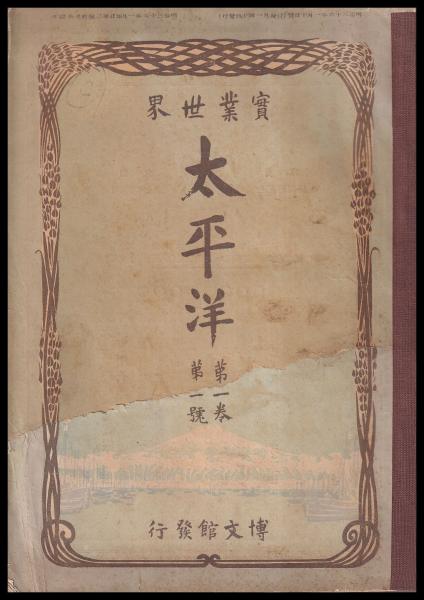 實業世界
太平洋
第一卷
第一號
博文館發行